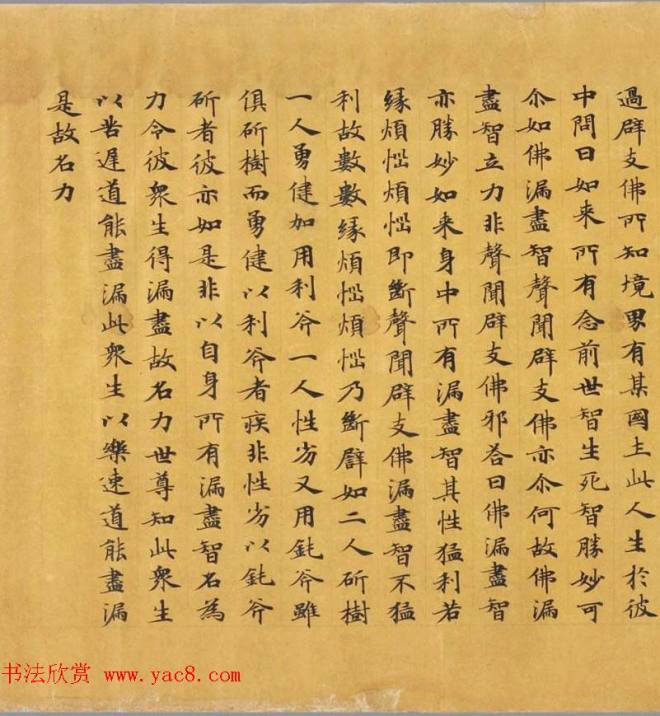 過辟支佛所知境界有某國土此人生於彼
中問曰如来所有念前世智生死智勝妙可
尒如佛漏盡智聲聞辟支佛亦尒何故佛漏
盡智立力非聲聞辟支佛邪荅曰佛漏盡智
亦勝妙如来身中所有漏盡智其性猛利若
緣煩惱煩惱即斷聲聞辟支佛漏盡智不猛
利故數數緣煩惱煩惱乃斷譬如二人斫樹
一人勇健加用利斧一人性劣又用鈍斧雖
俱斫樹而勇健以利斧者疾非性劣以鈍斧
斫者彼亦如是非以自身所有漏盡智名為
力令彼衆生得漏盡故名力世尊知此衆生
以苦遲道能盡漏此衆生以樂速道能盡漏
是故名力
书法欣赏 www.yac8.com